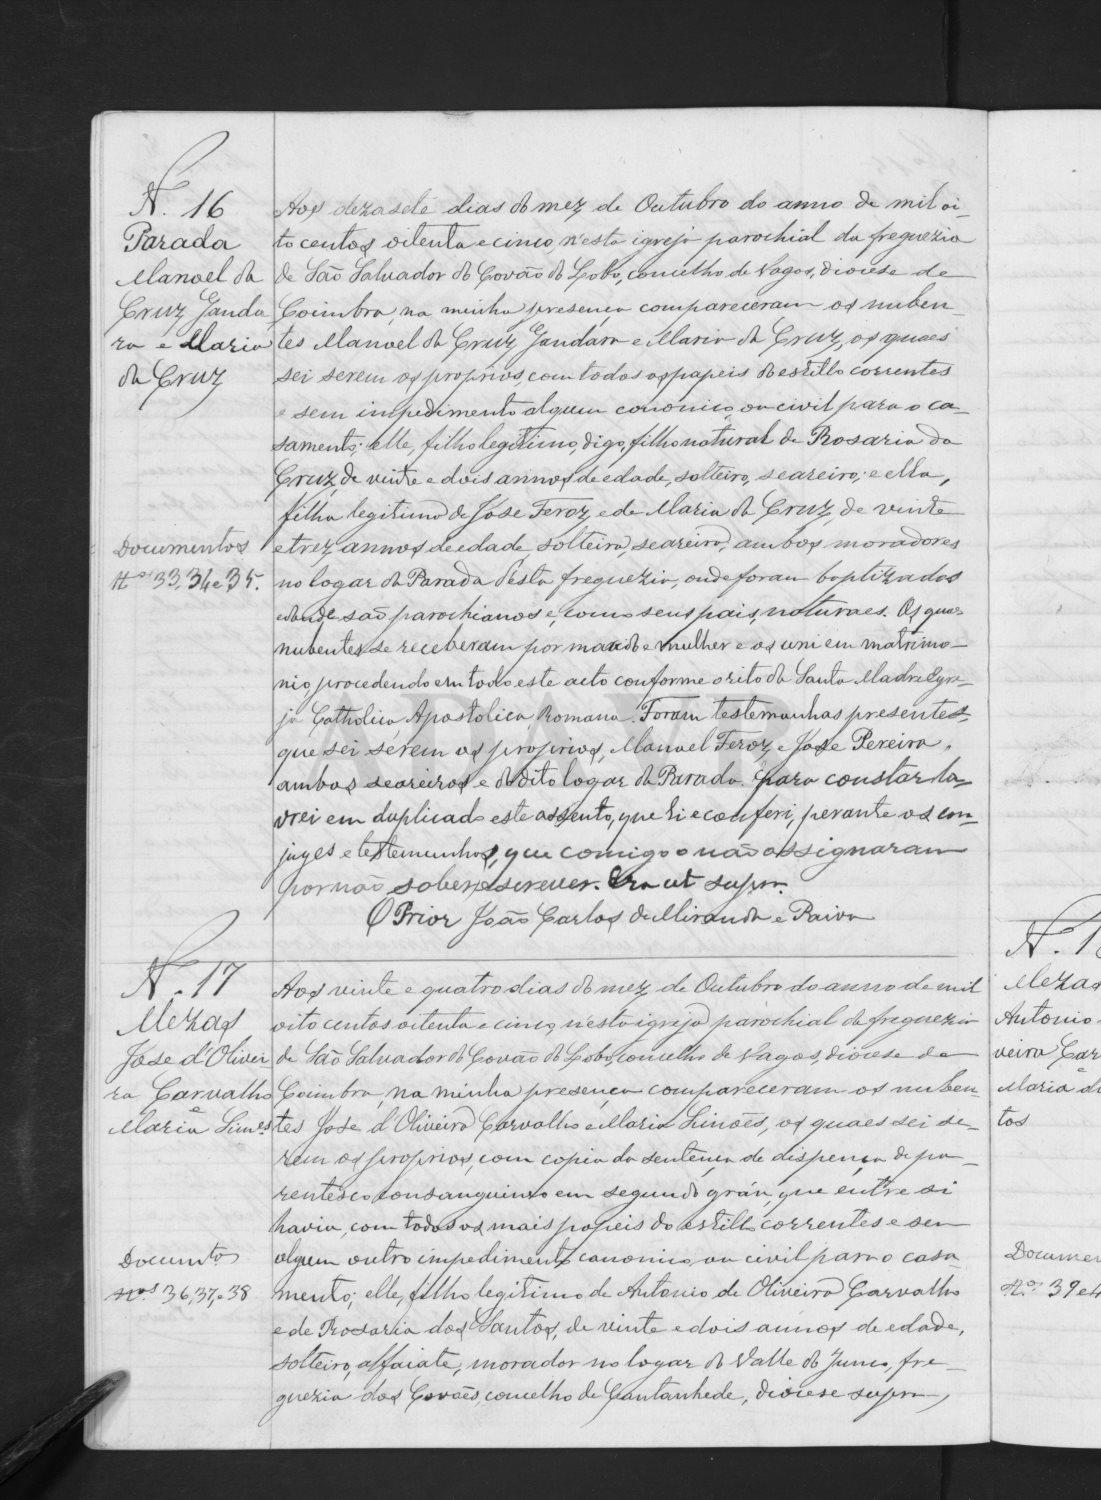 N. 16
Parada
Manoel da
Cruz Ganda
ra e Maria
da Cruz
Documentos
Nos 33, 34 e 35.
Aos dezasete dias do mez de Outubro do anno de mil oi-
to centos oitenta e cinco, n'esta igreja parochial da freguezia
de São Salvador do Covão do Lobo, concelho de Vagos, diocese de
Coimbra, na minha presença compareceram os nuben-
tes Manoel da Cruz Gandara e Maria da Cruz, os quaes
sei serem os proprios, com todos os papeis do estillo correntes
e sem impedimento algum canonico ou civil para o ca-
samento; elle, filho legitimo, digo, filho natural de Rosaria da
Cruz, de vinte e dois annos de edade, solteiro, seareiro; e ella,
filha legitima de José Feroz e de Maria da Cruz, de vinte
e trez annos de edade, solteira, seareira, ambos moradores
no logar da Parada d'esta freguezia, onde foram baptizados
e d'onde são parochianos e, como seus pais, naturaes. Os quaes
nubentes se receberam por marido e mulher e os uni em matrimo-
nio, procedendo em todo este acto conforme o rito da Santa Madre Egre-
ja Catholica, Apostolica, Romana. Foram testemunhas presentes,
que sei serem os proprios, Manoel Feroz e José Pereira,
ambos seareiros e do dito logar da Parada. E para constar la-
vrei em duplicado este assento, que li e conferi, perante os con-
juges e testemunhas, que comigo o não assignaram
por não saberem escrever. Era ut supra.
O Prior João Carlos de Miranda e Paiva
N. 17
Mezas
José d'Olivei
ra Carvalho
e
Maria Simões
Documtos
Nos 36, 37, e 38
Aos vinte e quatro dias do mez de Outubro do anno de mil
oito centos oitenta e cinco, n'esta igreja parochial da freguezia
de São Salvador do Covão do Lobo, concelho de Vagos, diocese de
Coimbra, na minha presença compareceram os nuben-
tes José d'Oliveira Carvalho e Maria Simões, os quaes sei se-
rem os proprios, com copia da sentença de dispensa de pa-
rentesco consanguineo em segundo gráu, que entre si
havia, com todos os mais papeis do estillo correntes e sem
algum outro impedimento canonico, ou civil para o casa-
mento; elle, filho legitimo de Antonio de Oliveira Carvalho
e de Rosaria dos Santos, de vinte e dois annos de edade,
solteiro, alfaiate, morador no logar do Valle do Junco, fre-
guezia dos Covões, concelho de Cantanhede, diocese supra,
N. 1
Mezas
Antonio
veira Car
e
Maria d
tos
Documen
Nos 39 e 4